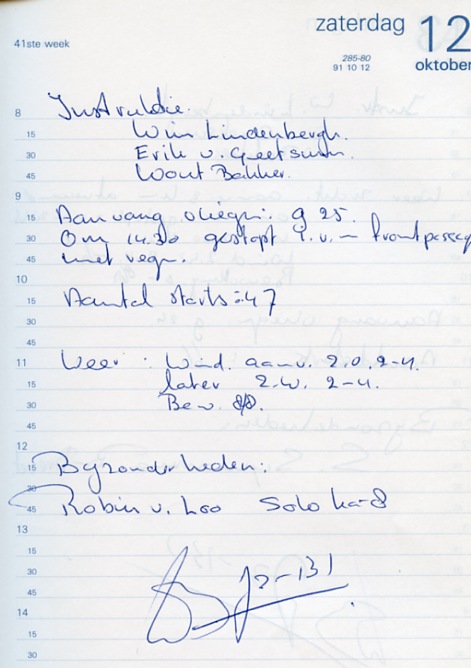 zaterdag 12
41ste week
285-80
91 10 12
oktober
8
15 Wim Lindenbergh.
30 Erik v.
45 Wout Bakker.
9
15 Aanvang vliegen: 9 25.
30 Om 14.30 gestopt i.v.m frontpassage
45 met regen
10
15 Aantal starts: 47
30
45
11 Weer: Wind. aanv. Z.O. 2-4.
15 later Z.W. 2-4.
30 Bew. 8/8.
45
12
15 Byzonderheden:
30
45 Robin v. Loo Solo Ka-8
13
15
30
45
14
15
30